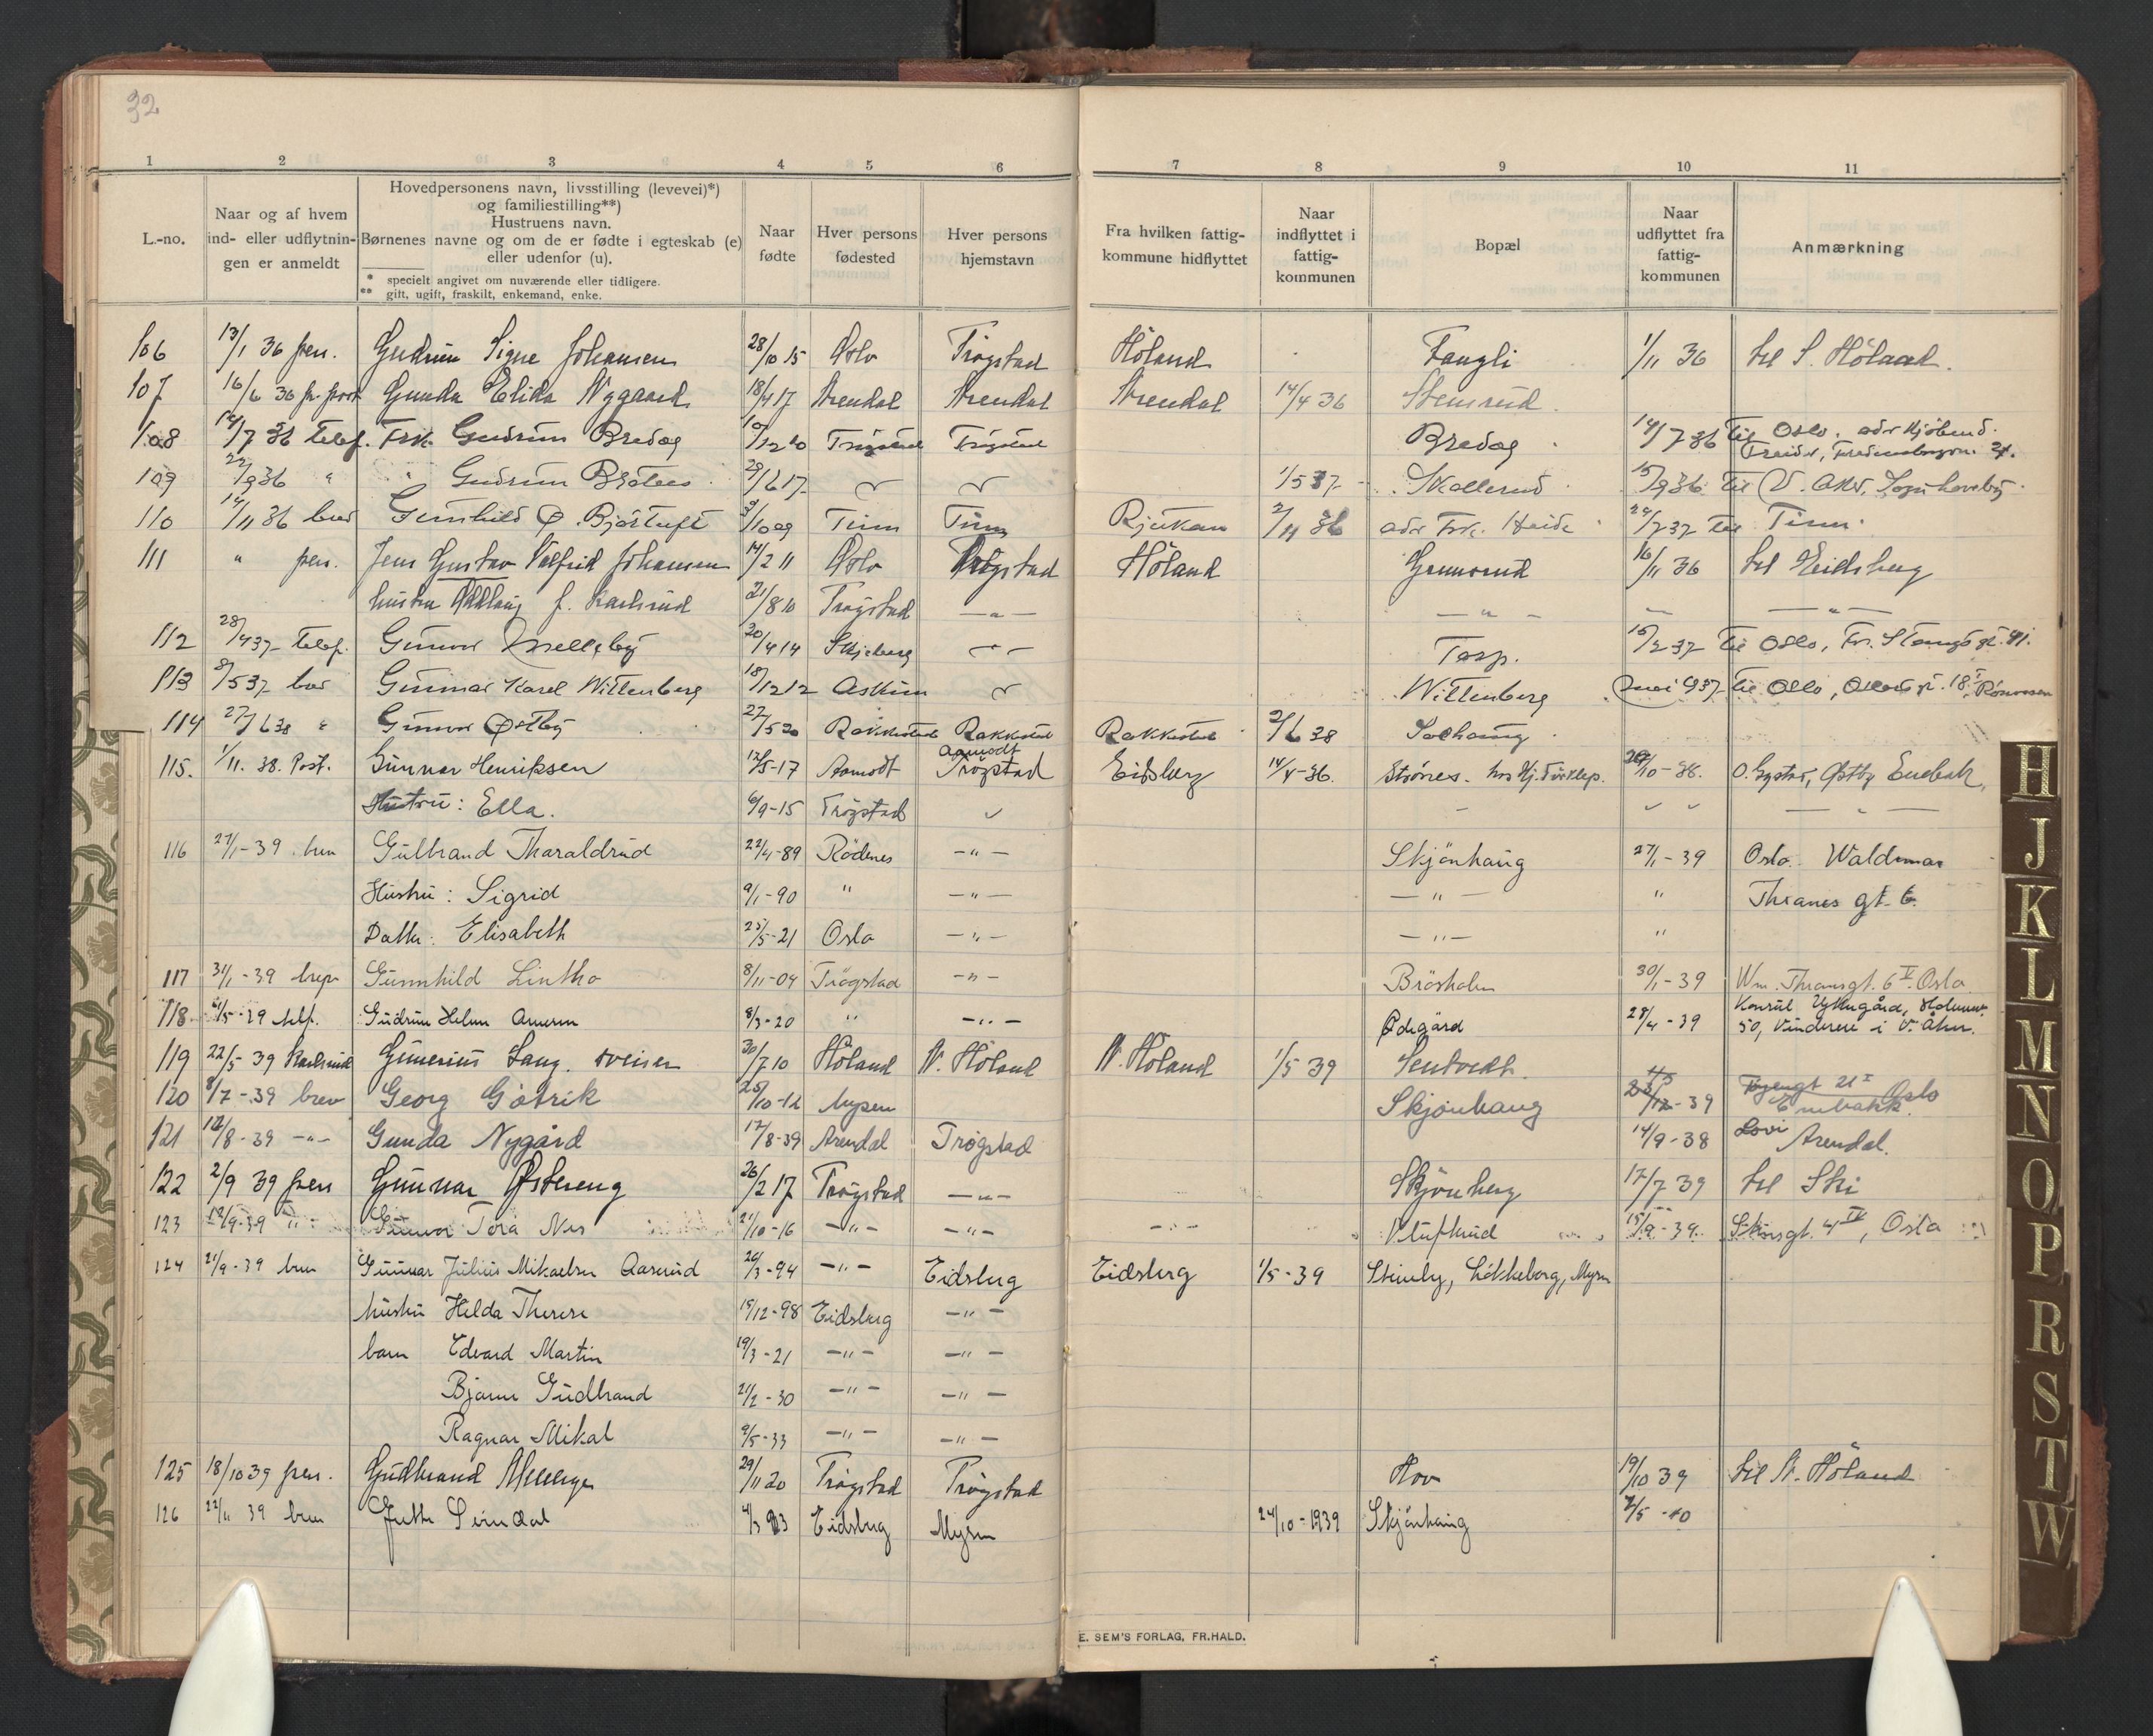 32
1 2 3 4 5 6 7 8 9 10 11
L.-no.
Naar og af hvem ind- eller udflytningen er anmeldt
Hovedpersonens navn, livsstilling (levevei)*) og familiestilling**)
Hustruens navn.
Børnenes navne og om de er fødte i egteskab (e) eller udenfor (u).
* specielt angivet om nuværende eller tidligere.
** gift, ugift, fraskilt, enkemand, enke.
Naar fødte
Hver persons fødested
Hver persons hjemstavn
Fra hvilken fattigkommune hidflyttet
Naar indflyttet i fattigkommunen
Bopæl
Naar udflyttet fra fattigkommunen
Anmærkning
106 13/1 36 pers. Gudrun Signe Johansen 28/10 15 Oslo Trøgstad Höland Fangli 1/11 36 til S. Höland.
107 16/6 36 pr. post Gunda Elida Nygaard 18/4 17 Arendal Arendal Arendal 14/4 36 Stenrud
108 14/7 36 telef. Frk. Gudrun Bredag 10/12 20 Trøgstad Trøgstad Bredag 14/7 36 til Oslo. adr Kjøbmd.
109 22/9 36 " " Gudrun Bråtees 29/6 17 1/5 37 Skallerud 15/9 36 til V. Aker,
110 14/11 36 brev Gunhild Ø. Bjørtuft 3/10 09 Tinn Tinn Rjukan 2/11 36 adr Frk. Heide 24/7 37 til Tinn.
111 " pers. Jens Gustav Valfrid Johansen 14/2 11 Oslo Trøgstad Höland Grønsrud 16/11 36 til Eidsberg
hustru f. Karlsrud 21/8 10 Trøgstad — " — — " — — " —
112 28/4 37 telef. Gunvor Melleby 20/4 14 Skjeberg Torp. 15/2 37 til Oslo, Fr. Stangs gt. 41.
113 8/5 37 brev Gunnar Karel Wittenberg 18/12 12 Askim Wittenberg mai 1937 til Oslo,
114 27/6 38 " Gunvor Østby 27/5 20 Rakkestad Rakkestad Rakkestad 2/6 38 Solhaug
115. 1/11. 38. Post. Gunnar Henriksen 12/5-17 Aamodt Aamodt Trögstad Eidsberg 14/4-36. Strönes. hos Hj. 26/10-38. Østby Enebak.
Hustru: Ella. 6/9-15 Trögstad
116 27/1-39. brev Gulbrand Tharaldrud 22/4-89 Rödenes — " — Skjönhaug 27/1-39 Oslo. Waldemar
Hustru: Sigrid 9/1-90 " — " — — " — " Thranes gt. 6.
Datter: Elisabeth 25/5-21 Oslo — " — — " — "
117 31/1-39 brev Gunnhild Lintho 8/11-04 Trögstad — " — Bråsholen 30/1-39 Wm. Thransgt. 6 V. Oslo
118 telf. Gudrun Helene 8/3-20 " — " — Ødegård 28/4-39 50, Vinderen i V. Aker.
119 22/5 39 Karlsrud Gunerius Lang. sveiser 30/7 10 Höland N. Höland N. Höland 1/5 39 Sentvedt.
120 8/7-39 brev Georg Gåtrik 25/10-12 Mysen Skjønhaug 39 Tøyengt 21 I Oslo
Enebakk.
121 12/8-39 — " — Gunda Nygård 17/8-39 Arendal Trøgstad 14/9-38 Arendal.
122 2/9 39 pers Gunnar Østereng 26/2 17 Trøgstad — " — Skjønberg 17/7 39 til Ski
123 12/9-39 " Gunvor Tora Nes 21/10-16 — " — — " — — " — 15/9-39. gt. 4 IV, Oslo
124 21/9-39 brev Gunnar Julius Mikaelsen Aaserud 26/3-94 — " — Eidsberg Eidsberg 1/5-39 Stenby, Løkkeberg, Mysen
hustru Helda Therese 15/12-98 Eidsberg — " —
barn Edvard Martin 19/3-21 — " — — " —
Bjarne Gudbrand 21/2-30 — " — — " —
Ragnar Mikal 9/5-33 — " — — " —
125 18/10 39 pers. Gudbrand 29/11 20 Trøgstad Trøgstad Hov 19/10 39 til N. Höland
126 22/11 39 brev 4/3 Eidsberg Mysen 24/10-1939 Skjönhaug 2/5-40
E. SEM'S FORLAG, FR.HALD.
H
J
K
L
M
N
O
P
R
S
T
W